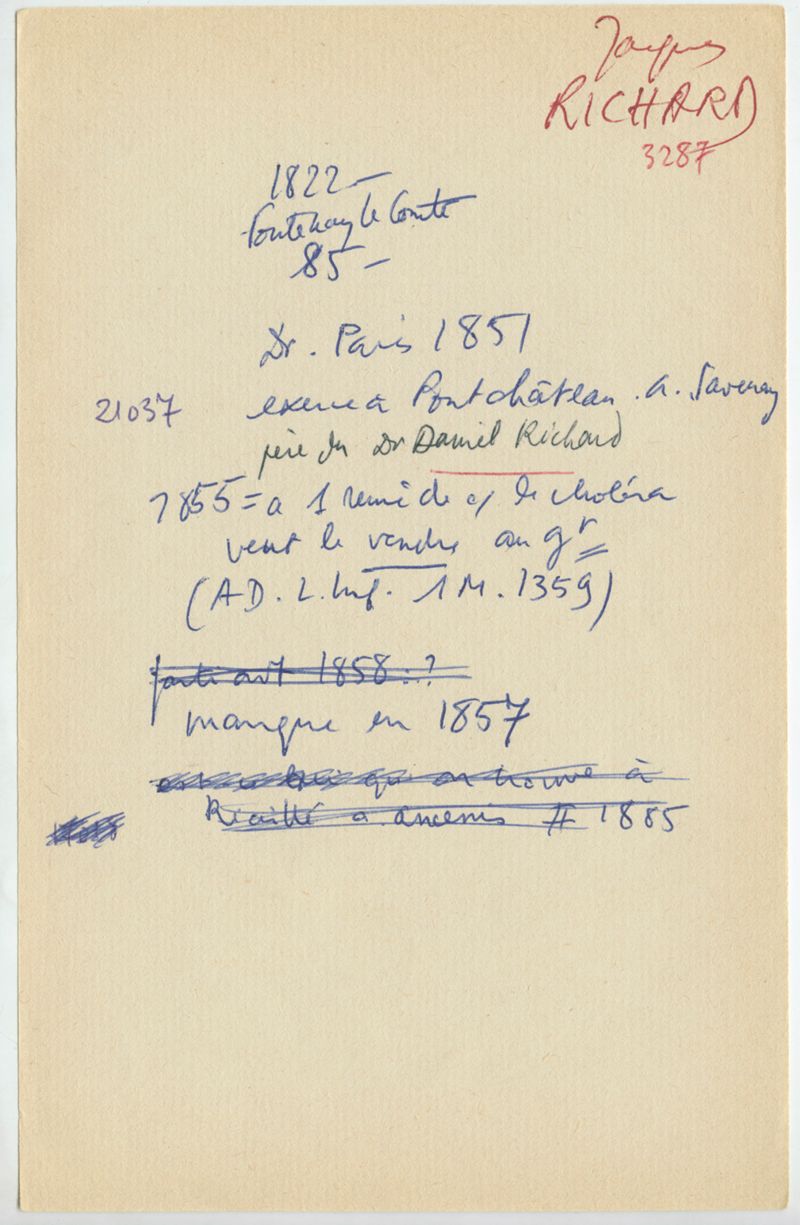 Jacques
RICHARD
3287
1822 -
Fontenay le Comte
85 -
Dr. Paris 1851
21037 exerce à Pontchâteau. a. Savenay
père du Dr Daniel Richard
1855 = a 1 remède c/ le choléra
veut le vendre au gt
(A D. L. Inf. 1 M. 1359)
parti avt 1858 : ?
manque en 1857
qu'on trouve à
Riaillé a. Ancenis # 1885